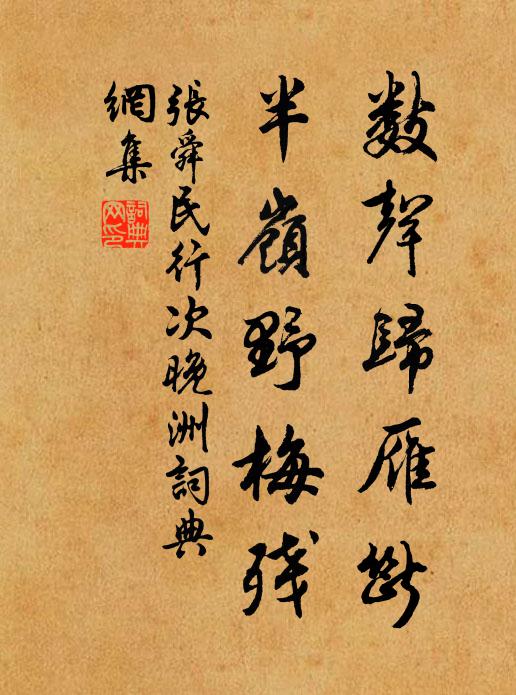 數聲歸雁斷
半嶺野梅残
張舜民行次晚洲詞典
網集
詞典
网印